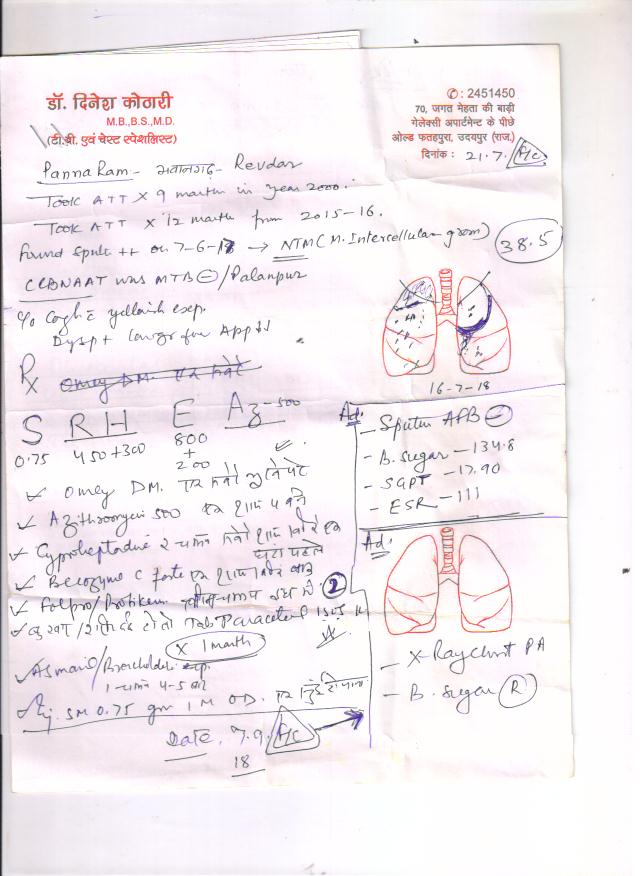 डॉ. दिनेश कोठारी
M.B.,B.S.,M.D.
(टी.बी. एवं चेस्ट स्पेशलिस्ट)
✆: 2451450
70, जगत मेहता की बाड़ी
गेलेक्सी अपार्टमेन्ट के पीछे
ओल्ड फतहपुरा, उदयपुर (राज.)
दिनांक : 21.7. F/C
Panna Ram - भवानगढ़ - Revdar
Took ATT X 9 month in year 2000.
Took ATT X 12 month from 2015-16.
found Sputum ++ on 7-6-18 → NTM (M. Intercellular-grom)
38.5
CBNAAT was MTB ⊖ / Palanpur
c/o Cough c yellowish exp.
Dysp + low gr fever App ↓↓
16-7-18
Rx
S RH E Az-500
0.75 450+300 800
+
200
Ad:
- Sputum AFB ⊖
- B. Sugar - 134.8
- SGPT - 17.90
- ESR - 111
✓ Omey DM. एक
✓ Azithromycin 500 एक शाम 4 बजे
✓ Cyproheptadine 2 चम्मच शाम एक
घंटा पहले
✓ Becozyme C forte एक शाम बाद
✓ Folpro/Protikem चम्मच दूध में 2
✓ बुखार / हो तो Tab Paracetol
X 1 month
✓ Asmail/ exp.
1 चम्मच 4-5 बार
✓ Inj. SM 0.75 gm IM OD.
Ad:
- X-Ray Chest PA
- B. Sugar (R)
Date. 7.9. F/C
18